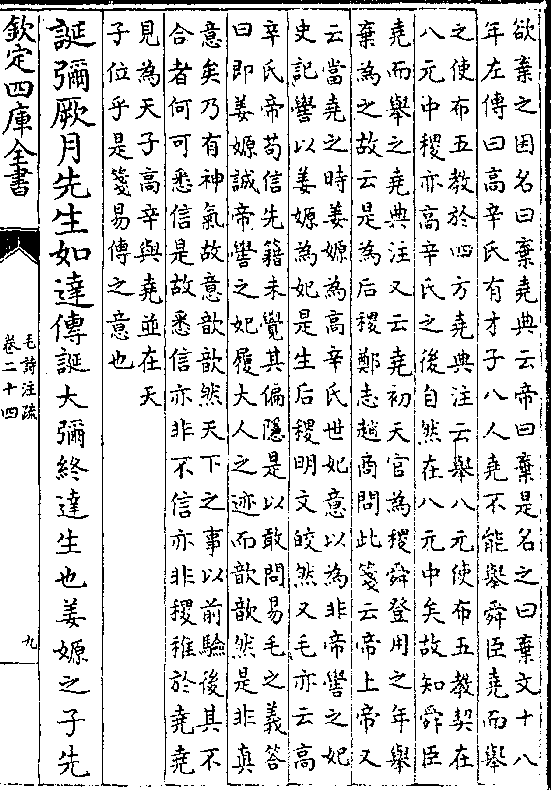 欲棄之因名曰棄堯典云帝曰棄是名之曰棄文十八
年左傳曰高辛氏有才子八人堯不能舉舜臣堯而舉
之使布五教於四方堯典注云舉八元使布五教契在
八元中稷亦高辛氏之後自然在八元中矣故知舜臣
堯而舉之堯典注又云堯初天官為稷舜登用之年舉
棄為之故云是為后稷鄭志趙商問此箋云帝上帝又
云當堯之時姜嫄為高辛氏世妃意以為非帝嚳之妃
史記嚳以姜嫄為妃是生后稷明文皎然又毛亦云高
辛氏帝苟信先籍未覺其偏隱是以敢問易毛之義答
曰即姜嫄誠帝嚳之妃履大人之迹而歆歆然是非真
意矣乃有神氣故意歆歆然天下之事以前驗後其不
合者何可悉信是故悉信亦非不信亦非稷稚於堯堯
見為天子高辛與堯並在天
子位乎是箋易傳之意也
誕彌厥月先生如達傳誕大彌終達生也姜嫄之子先
欽定四庫全書
毛詩注疏
卷二十四
九